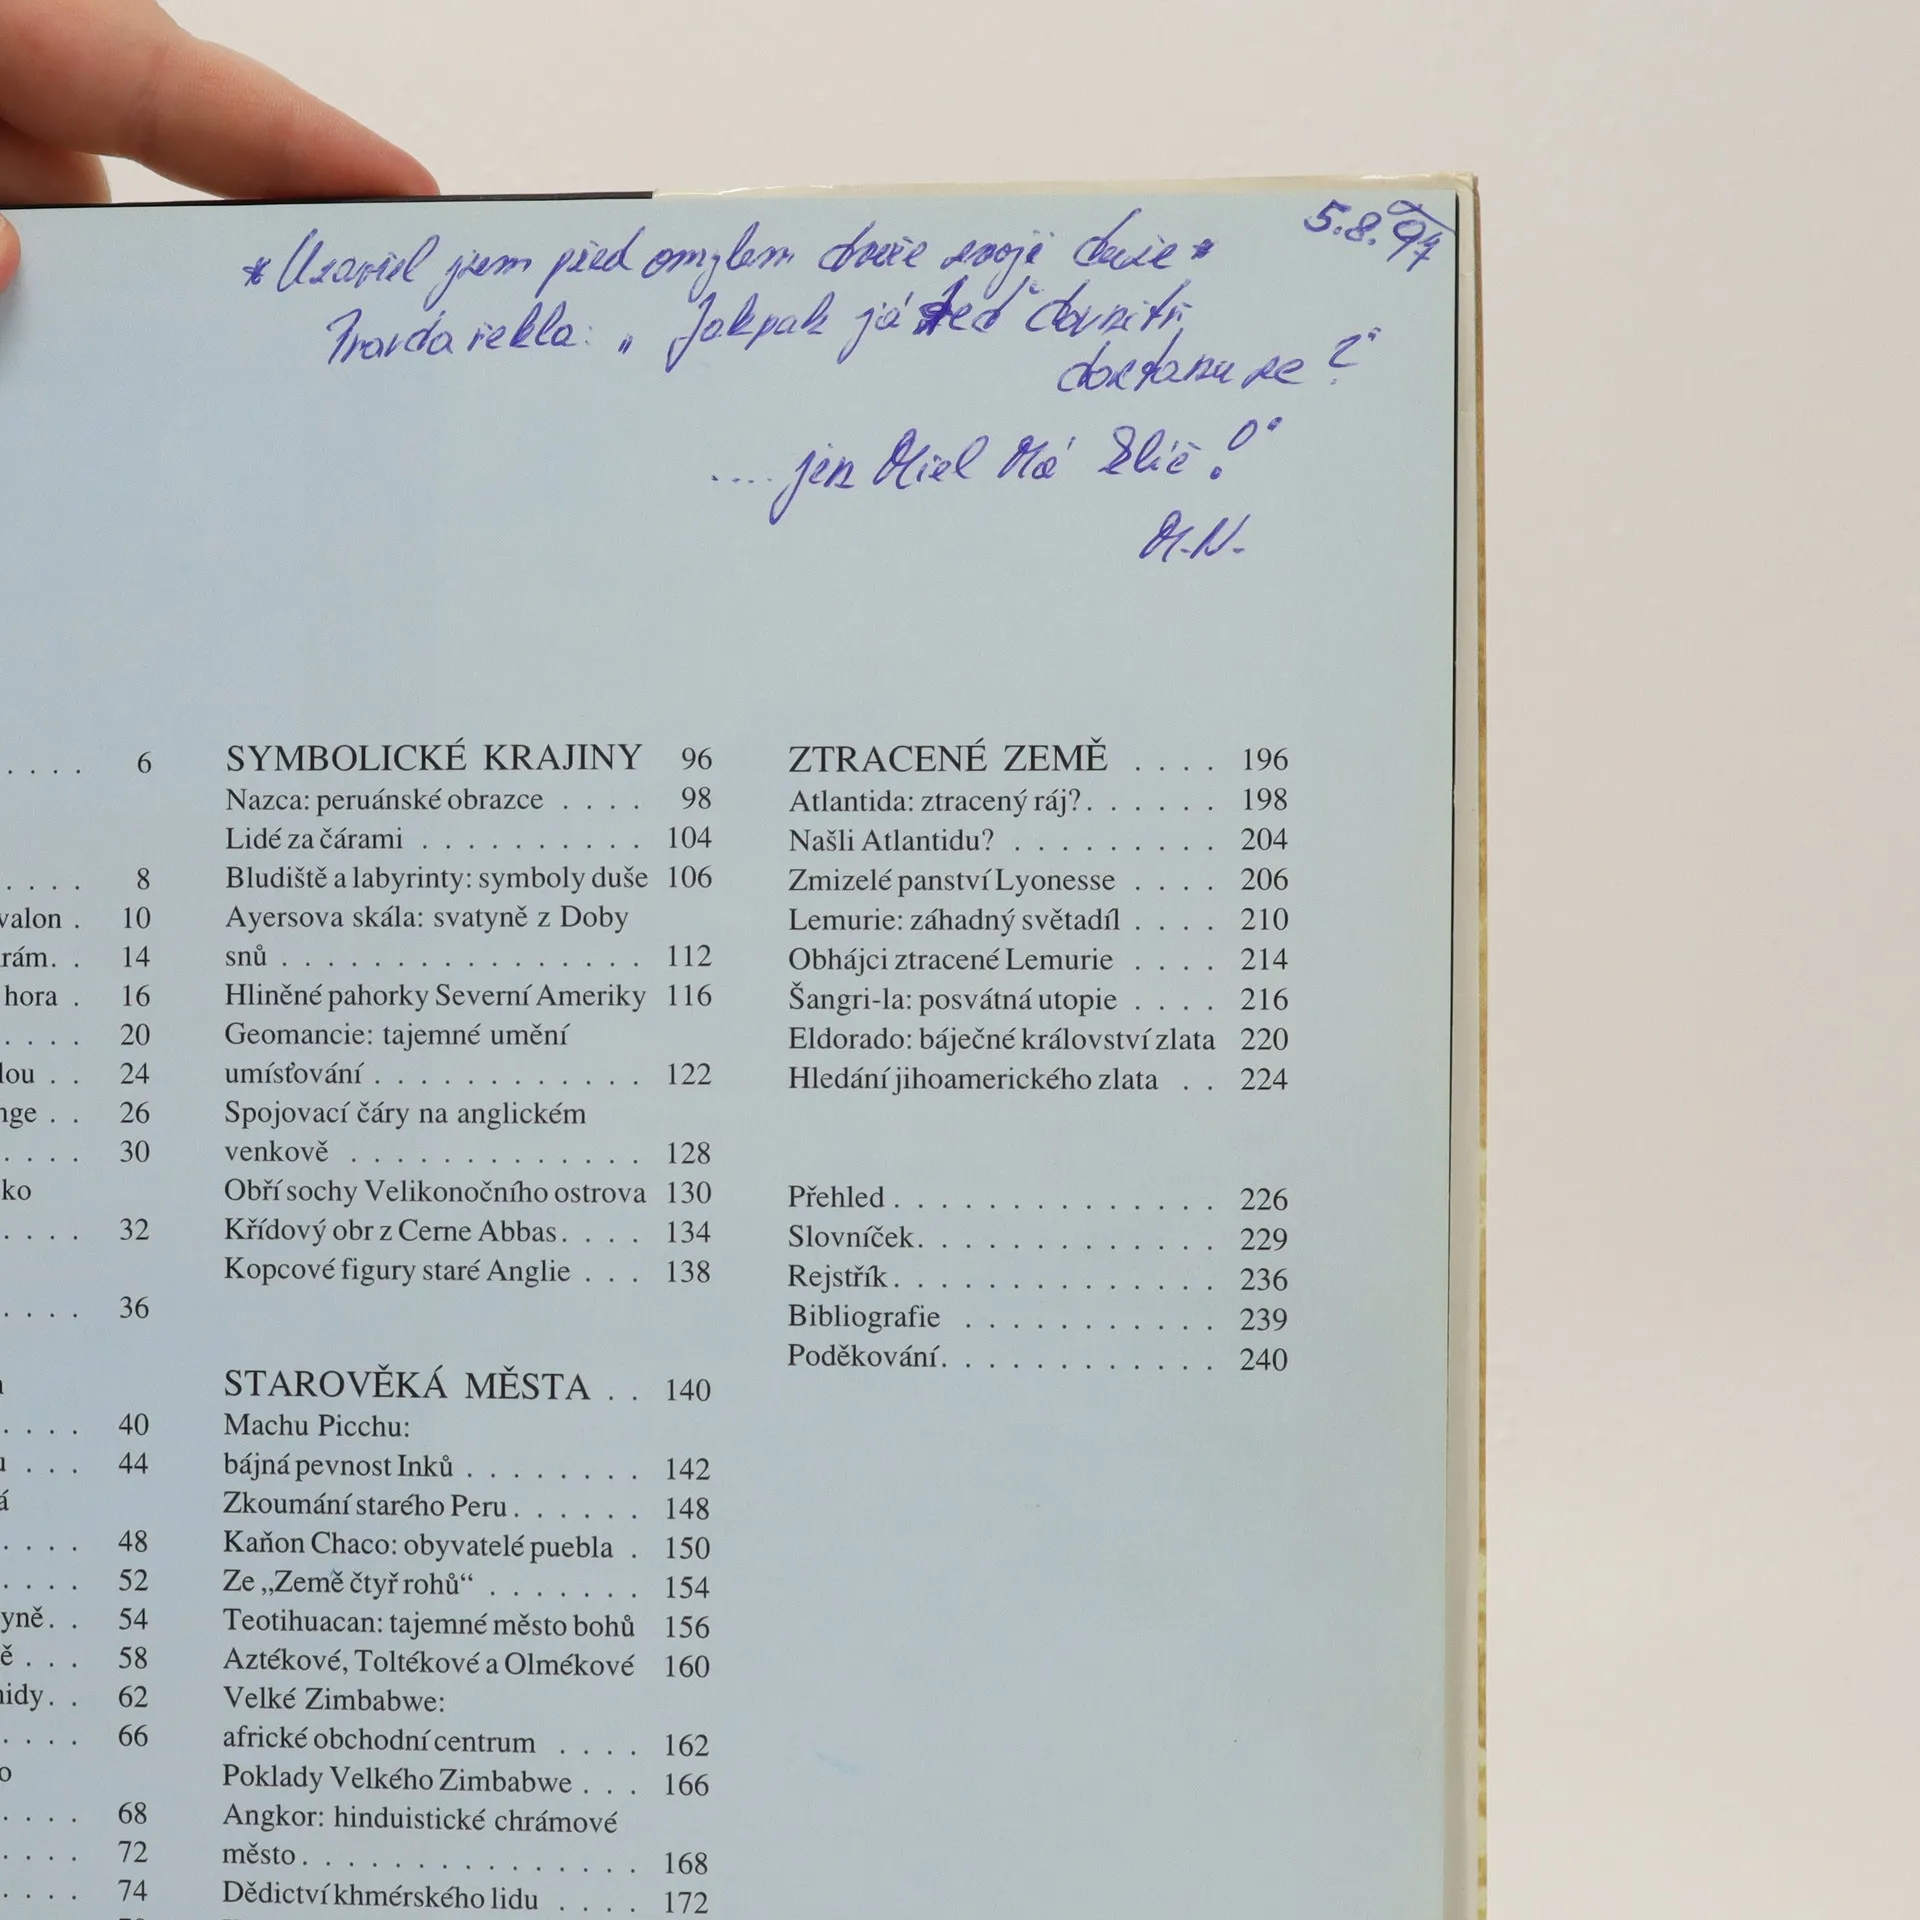 5.8.97
* Uzavřel jsem před omylem dveře svojí duše *
Pravda řekla: „Jakpak já teď dovnitř
dostanu se?“
.... jen Miel Má Klíč!“
M.N.
. . . . 6
. . . . 8
valon . 10
rám. . 14
hora . 16
. . . . 20
lou . . 24
nge . . 26
. . . . 30
ko
. . . . 32
. . . . 36
. . . . 40
. . . 44
á
. . . . 48
. . . . 52
yně. . 54
ě . . . 58
nidy. . 62
. . . . 66
o
. . . . 68
. . . . 72
. . . . 74
SYMBOLICKÉ KRAJINY 96
Nazca: peruánské obrazce . . . . 98
Lidé za čárami . . . . . . . . . . 104
Bludiště a labyrinty: symboly duše 106
Ayersova skála: svatyně z Doby
snů . . . . . . . . . . . . . . . . 112
Hliněné pahorky Severní Ameriky 116
Geomancie: tajemné umění
umísťování . . . . . . . . . . . . 122
Spojovací čáry na anglickém
venkově . . . . . . . . . . . . . 128
Obří sochy Velikonočního ostrova 130
Křídový obr z Cerne Abbas. . . . 134
Kopcové figury staré Anglie . . . 138
STAROVĚKÁ MĚSTA . . 140
Machu Picchu:
bájná pevnost Inků . . . . . . . . 142
Zkoumání starého Peru. . . . . . 148
Kaňon Chaco: obyvatelé puebla . 150
Ze „Země čtyř rohů“ . . . . . . . 154
Teotihuacan: tajemné město bohů 156
Aztékové, Toltékové a Olmékové 160
Velké Zimbabwe:
africké obchodní centrum . . . . 162
Poklady Velkého Zimbabwe . . . 166
Angkor: hinduistické chrámové
město. . . . . . . . . . . . . . . . 168
Dědictví khmérského lidu . . . . 172
ZTRACENÉ ZEMĚ . . . . 196
Atlantida: ztracený ráj?. . . . . . 198
Našli Atlantidu? . . . . . . . . . 204
Zmizelé panství Lyonesse . . . . 206
Lemurie: záhadný světadíl . . . . 210
Obhájci ztracené Lemurie . . . . 214
Šangri-la: posvátná utopie . . . . 216
Eldorado: báječné království zlata 220
Hledání jihoamerického zlata . . 224
Přehled . . . . . . . . . . . . . . 226
Slovníček. . . . . . . . . . . . . 229
Rejstřík. . . . . . . . . . . . . . 236
Bibliografie . . . . . . . . . . . 239
Poděkování. . . . . . . . . . . . 240